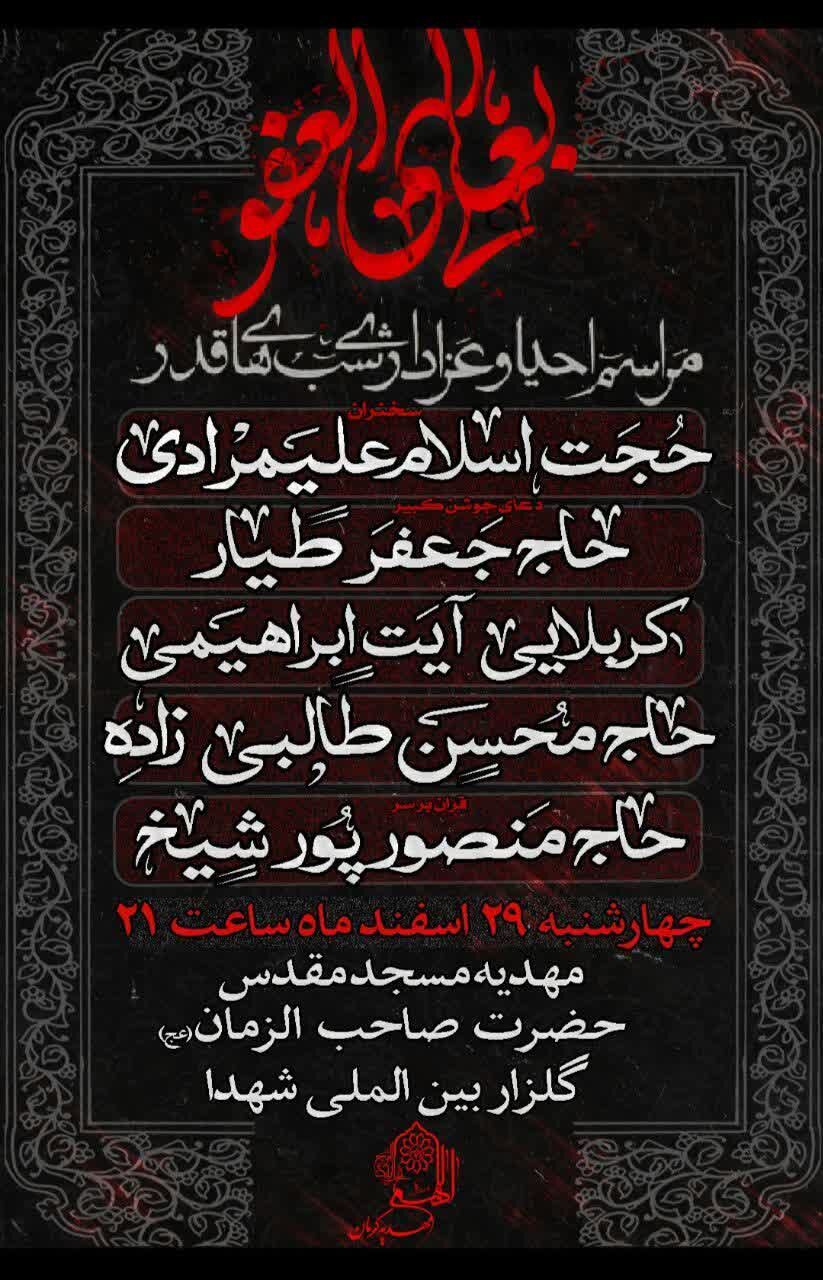 بعلی الهی العفو
مراسم احیا و عزاداری شب های قدر
سخنران
حُجَت اسلام علیمرادی
دعای جوشن کبیر
حاج جَعفَر طَیار
کربلایی آیَت اِبراهیمی
حاج مُحسِن طالبی زادِه
قران بر سر
حاج مَنصور پُور شِیخ
چهارشنبه ۲۹ اسفند ماه ساعت ۲۱
مهدیه مسجد مقدس
حضرت صاحب الزمان (عج)
گلزار بین المللی شهدا
مهدیه کرمان